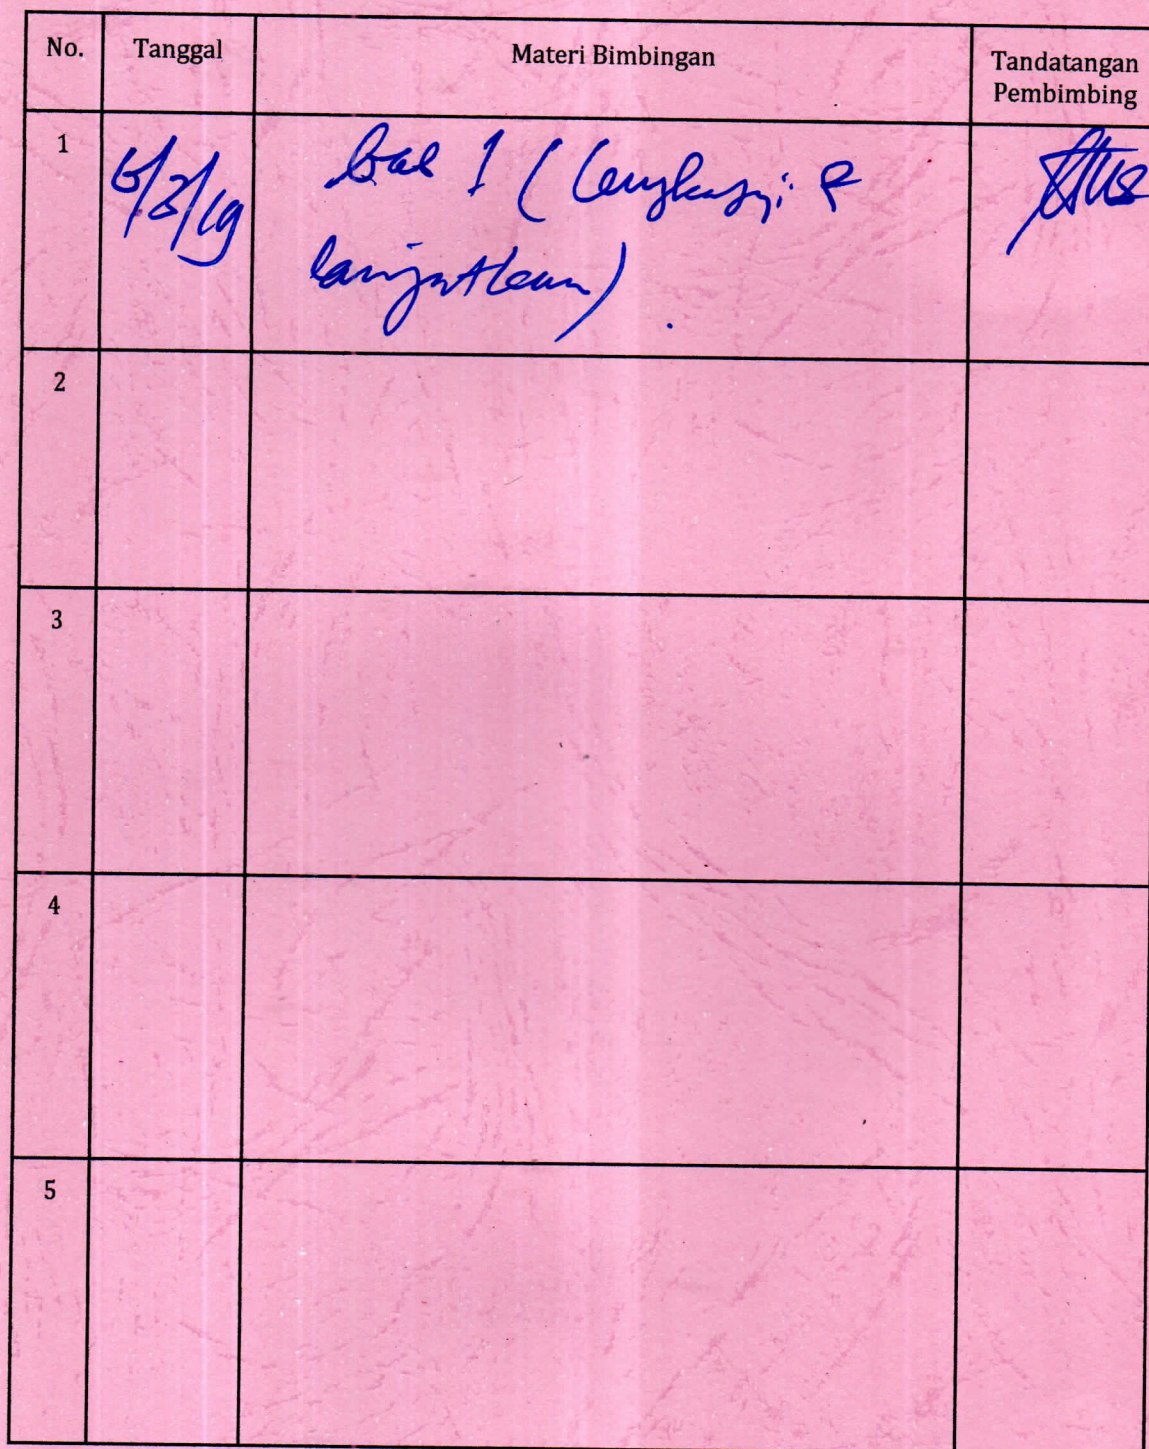 No. Tanggal Materi Bimbingan Tandatangan Pembimbing
1 bab 1 ( lengkapi &
lanjutkan) .
2
3
4
5